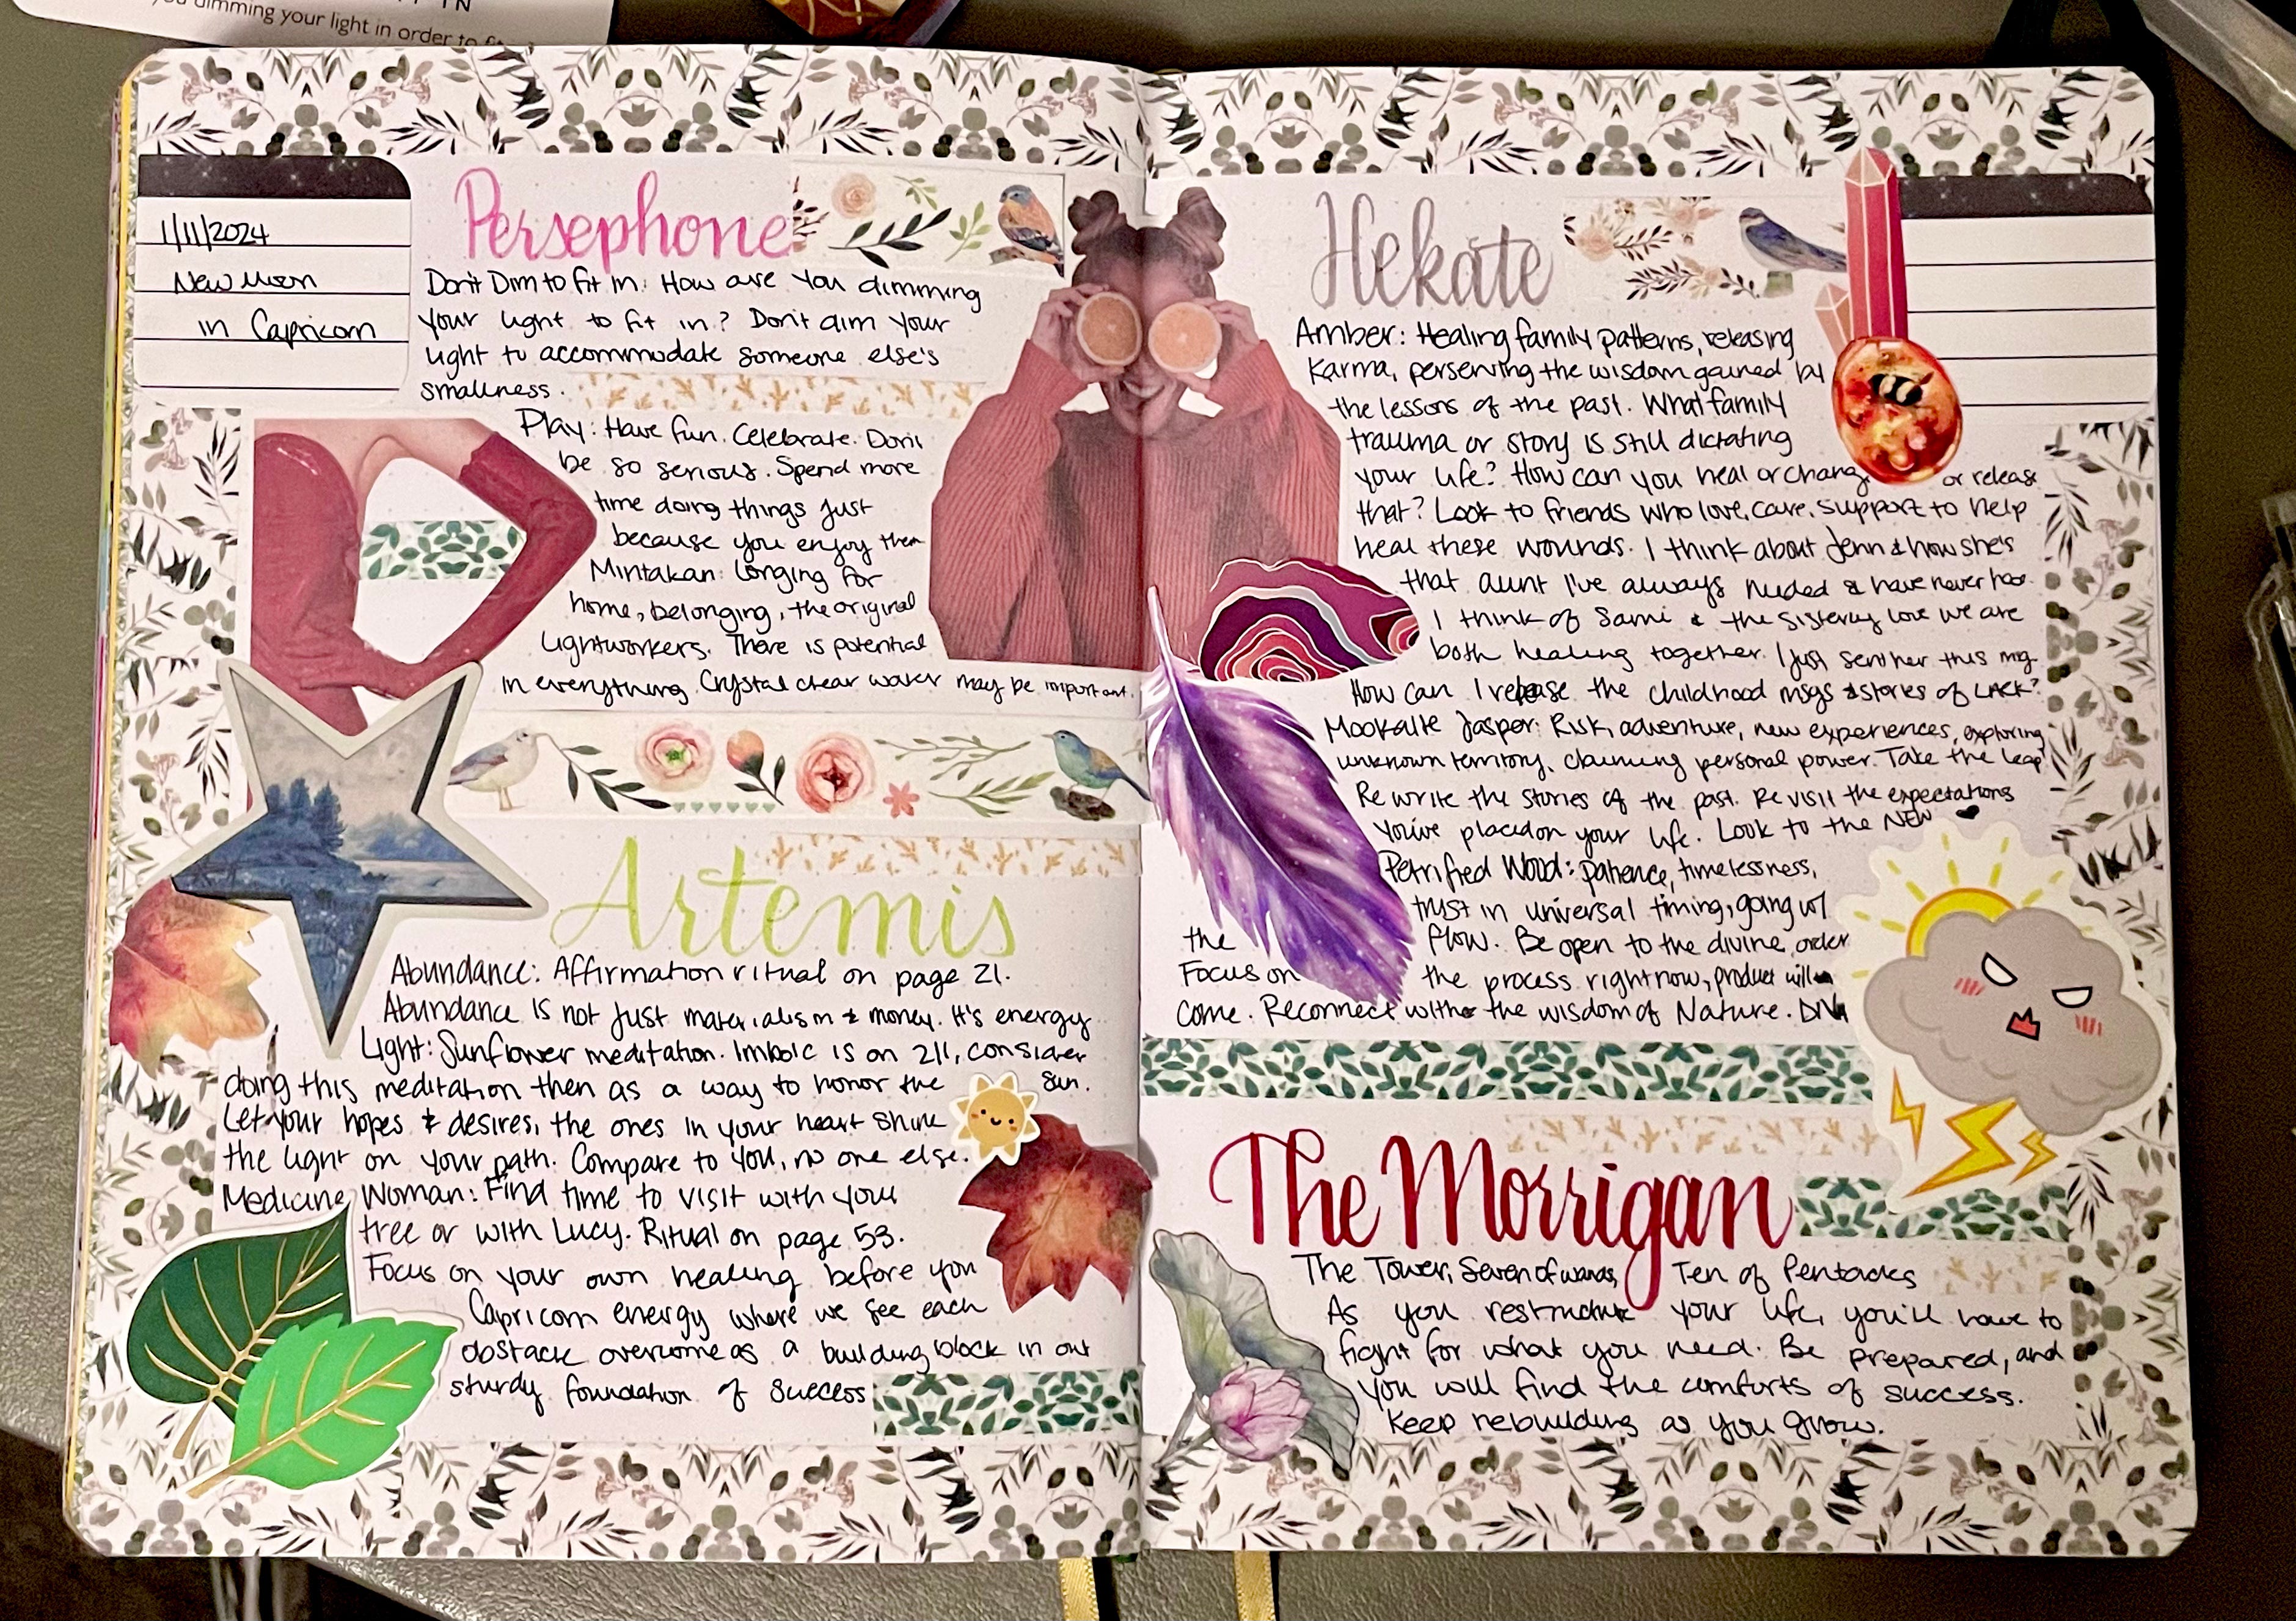 IN
you dimming your light in order to
1/11/2024
New Moon
in Capricorn
Persephone
Don't Dim to fit in: How are you dimming
your light to fit in? Don't dim your
light to accommodate someone else's
smallness.
Play: Have fun. Celebrate. Don't
be so serious. Spend more
time doing things just
because you enjoy them
Mintakan: longing for
home, belonging, the original
Lightworkers. There is potential
in everything. Crystal clear water may be important.
Artemis
Abundance: Affirmation ritual on page 21.
Abundance is not just materialism & money. It's energy
Light: Sunflower meditation. Imbolc is on 2/1, consider
doing this meditation then as a way to honor the sun.
Let your hopes & desires, the ones in your heart shine
the light on your path. Compare to you, no one else.
Medicine Woman: Find time to visit with your
tree or with Lucy. Ritual on page 53.
Focus on your own healing before you
Capricorn energy where we see each
obstacle overcome as a building block in our
sturdy foundation of success
Hekate
Amber: Healing family patterns, releasing
Karma, perserving the wisdom gained by
the lessons of the past. What family
trauma or story is still dictating
your life? How can you heal or chang or release
that? Look to friends who love, care, support to help
heal these wounds. I think about Jenn & how she's
that aunt I've always needed & have never had.
I think of Sami & the sisterly love we are
both healing together. I just sent her this msg.
How can I release the childhood msgs & stories of LACK?
Mookaite Jasper: Risk, adventure, new experiences, exploring
unknown territory, claiming personal power. Take the leap
Rewrite the stories of the past. Revisit the expectations
you've placed on your life. Look to the NEW
Petrified Wood: patience, timelessness,
trust in universal timing, going w/
the flow. Be open to the divine order
Focus on the process right now, product will
come. Reconnect with the wisdom of Nature. DNA
The Morrigan
The Tower, Seven of wands, Ten of Pentacles
As you restructure your life, you'll have to
fight for what you need. Be prepared, and
you will find the comforts of success.
Keep rebuilding as you grow.